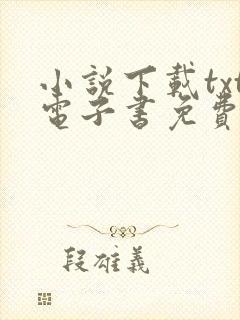 小說下載txt
電子書免費
段雄義